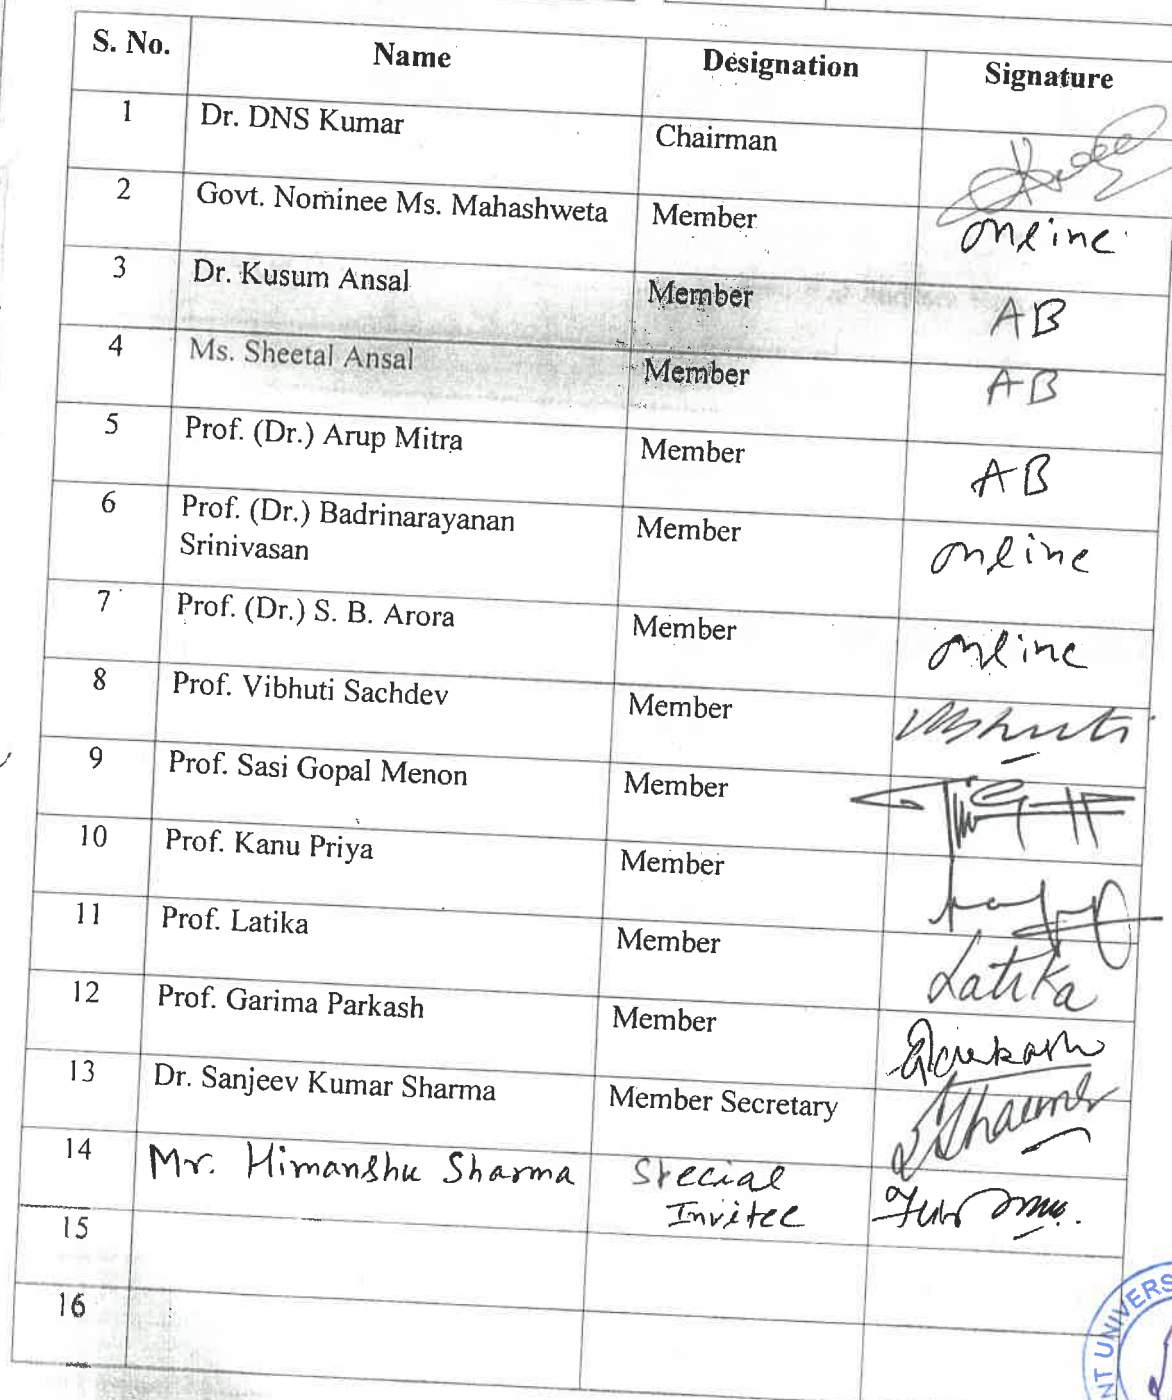 S. No. Name Designation Signature
1 Dr. DNS Kumar Chairman
2 Govt. Nominee Ms. Mahashweta Member online
3 Dr. Kusum Ansal Member AB
4 Ms. Sheetal Ansal Member AB
5 Prof. (Dr.) Arup Mitra Member AB
6 Prof. (Dr.) Badrinarayanan Member online
Srinivasan
7 Prof. (Dr.) S. B. Arora Member online
8 Prof. Vibhuti Sachdev Member
9 Prof. Sasi Gopal Menon Member
10 Prof. Kanu Priya Member
11 Prof. Latika Member Latika
12 Prof. Garima Parkash Member
13 Dr. Sanjeev Kumar Sharma Member Secretary
14 Mr. Himanshu Sharma Special
Invitee
15
16
NT UNIVERS